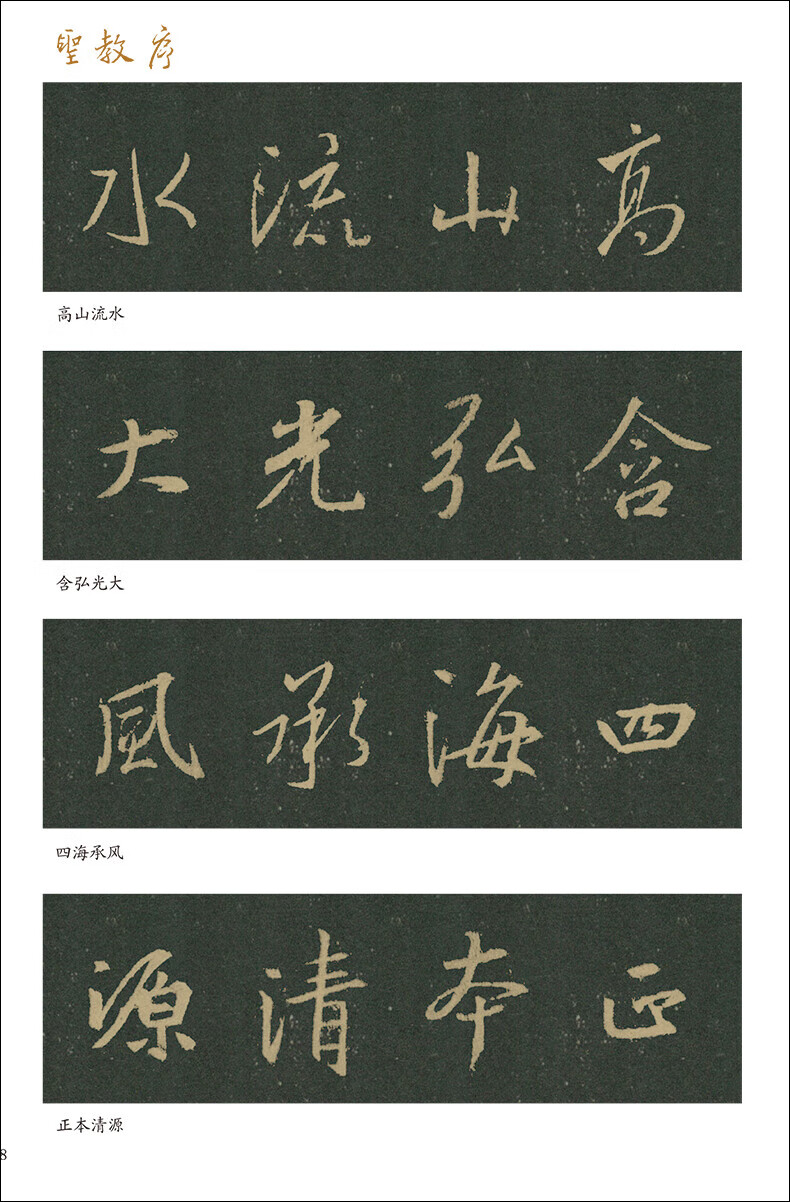 聖教序
高山流水
高山流水
含弘光大
含弘光大
四海承風
四海承风
正本清源
正本清源
8